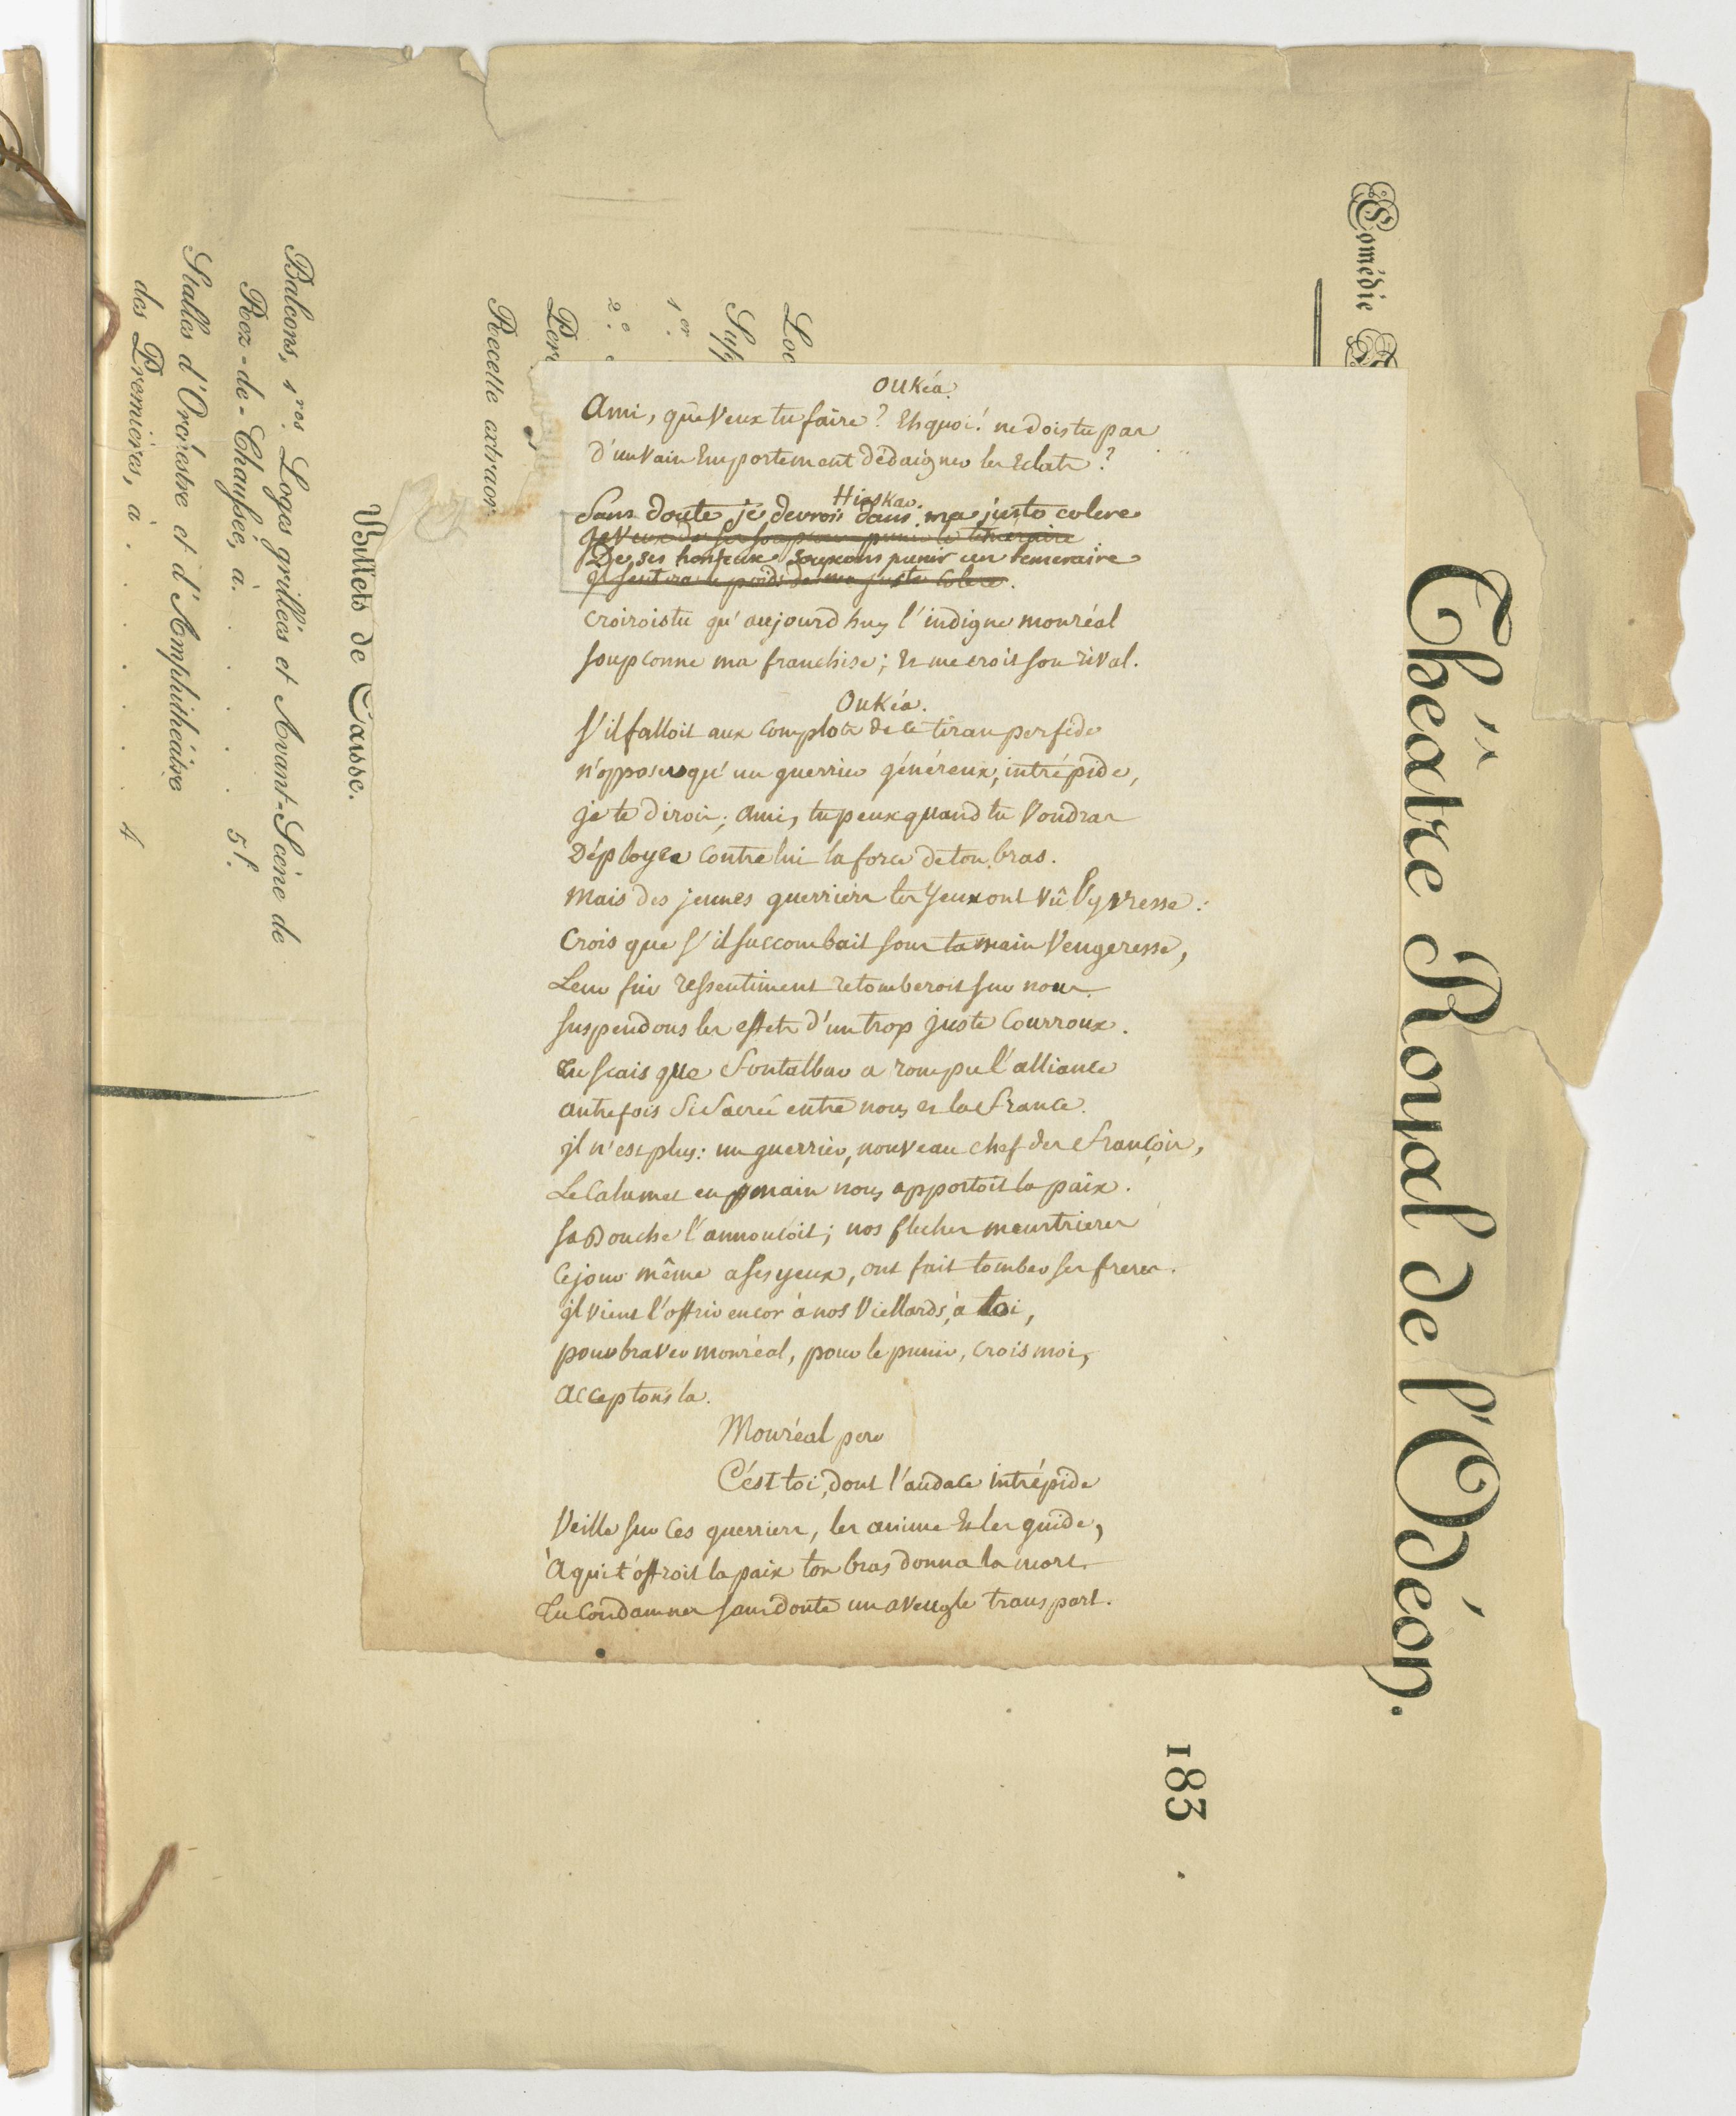 Oukéa.
Ami, que veux tu faire ? Eh quoi ! ne dois tu pas
d'un vain Emportement dédaigner les Eclats ?
Hirskar.
Sans doute je devrois dans ma juste colere
je veux de ses soupçons punir le témeraire
De ses honteux soupçons punir un temeraire
il sentira le poids de ma juste colere.
croiroistu qu'aujourd huy l'indigne monréal
soupconne ma franchise ; Et me croit son rival.
Oukéa.
S'il falloit aux complots de ce tiran perfide
n'opposer qu'un guerrier généreux, intrépide,
je te dirois ; Ami, tu peux quand tu voudras
Déployer contre lui la force de ton bras.
Mais des jeunes guerriers les yeux ont vû l'yvresse :
Crois que s'il succombait sous ta main vengeresse,
Leur fier ressentiment retomberoit sur nous.
suspendons les effets d'un trop juste Courroux.
tu scais que fontalbar a rompu l'alliance
autrefois si sacrée entre nous et la france.
il n'est plus : un guerrier, nouveau chef des françois,
Le Calumet en main nous apportoit la paix.
sa bouche l'annonçoit ; nos fleches meurtrieres
Ce jour même a ses yeux, ont fait tomber ses freres.
il vient l'offrir encor à nos vieillards, à toi,
pour braver monréal, pour le punir, crois moi,
acceptons la.
Monréal pere
C'est toi, dont l'audace intrépide
Veille sur ces guerriers, les anime Et les guide,
à qui t'offroit la paix ton bras donna la mort.
tu condamnes sans doute un aveugle transport.
Comédie
Théatre Royal de l'Odéon.
183
Loc
Sup
1er.
2e.
Par
Recette extraor
Billets de Caisse.
Balcons, 1res. Loges grillées et Avant-Scène de
Rez-de-Chaussée, à . . . . . 5f.
Stalles d'Orchestre et d'Amphithéatre
des Premières, à . . . . . 4